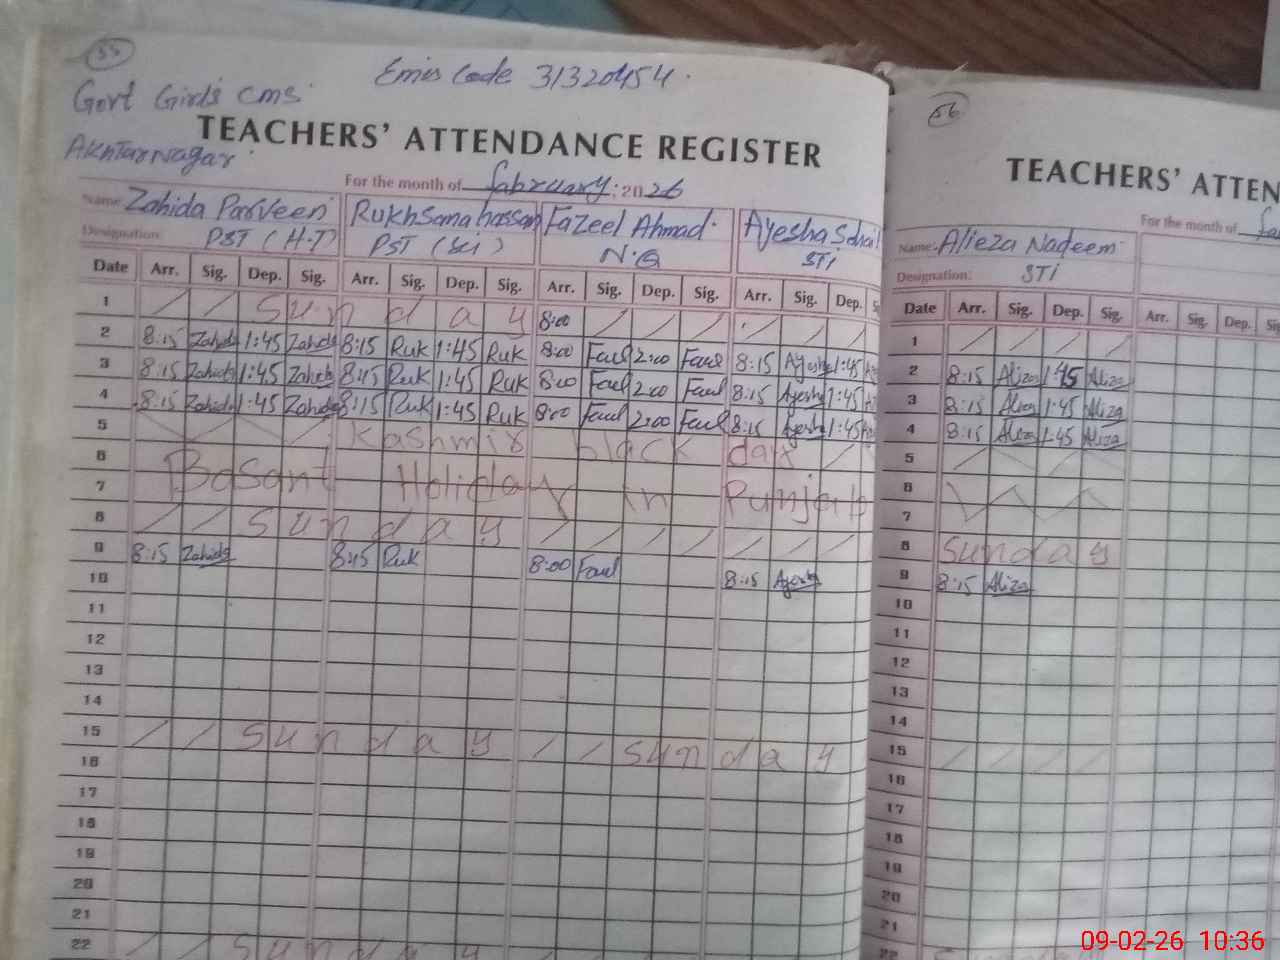 55
Emis Code 31320454.
Govt Girls CMS.
TEACHERS' ATTENDANCE REGISTER
Akhtar Nagar
For the month of fabruary. 2026
Name Zahida Parveen Rukhsana hassan Fazeel Ahmad. Ayesha Sohail
Designation: PST (H.T) PST (Sci) N.Q STi
Date Arr. Sig. Dep. Sig. Arr. Sig. Dep. Sig. Arr. Sig. Dep. Sig. Arr. Sig. Dep.
1 Sunday 8:00
2 8:15 Zahida 1:45 Zahida 8:15 Ruk 1:45 Ruk 8:00 Faul 2:00 Faul 8:15 Ayesha 1:45
3 8:15 Zahida 1:45 Zahida 8:15 Ruk 1:45 Ruk 8:00 Faul 2:00 Faul 8:15 Ayesha 1:45
4 8:15 Zahida 1:45 Zahida 8:15 Ruk 1:45 Ruk 8:00 Faul 2:00 Faul 8:15 Ayesha 1:45
5 Kashmir black day
6 Basant Holiday in Punjab
7
8 Sunday
9 8:15 Zahida 8:15 Ruk 8:00 Faul 8:15 Ayesha
10
11
12
13
14
15 Sunday Sunday
16
17
18
19
20
21
22 Sunday
56
TEACHERS' ATTEN
For the month of
Name: Alieza Nadeem
Designation: STi
Date Arr. Sig. Dep. Sig. Arr. Sig. Dep.
1
2 8:15 Aliza 1:45 Aliza
3 8:15 Aliza 1:45 Aliza
4 8:15 Aliza 1:45 Aliza
5
6
7
8 Sunday
9 8:15 Aliza
10
11
12
13
14
15
16
17
18
19
20
21
22
09-02-26 10:36